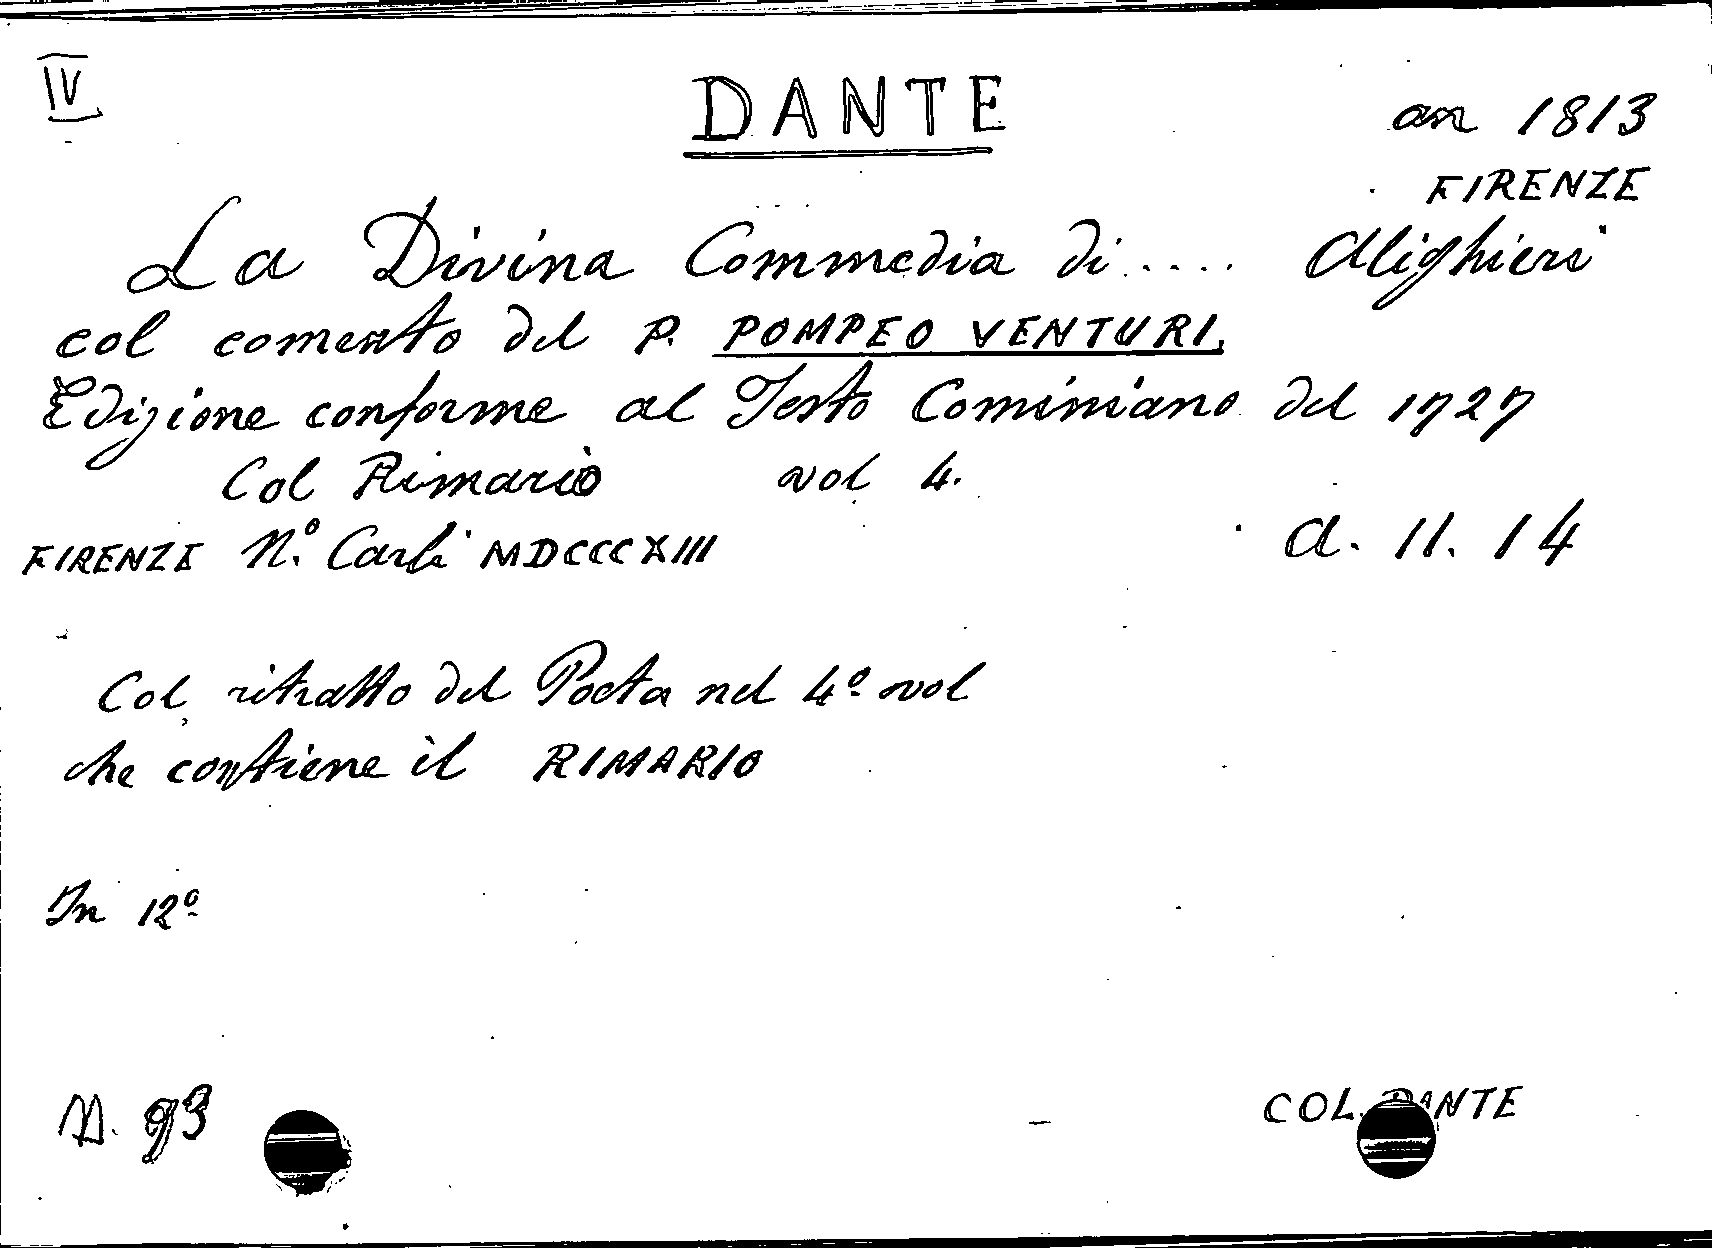 IV
DANTE
an 1813
FIRENZE
La Divina Commedia di..... Alighieri
col comento del P. POMPEO VENTURI.
Edizione conforme al Testo Cominiano del 1727
Col Rimario vol 4.
FIRENZE N.º Carli MDCCCXIII
a. 11. 14
Col ritratto del Poeta nel 4º vol
che contiene il RIMARIO
In 12º
N. 93
COL. DANTE